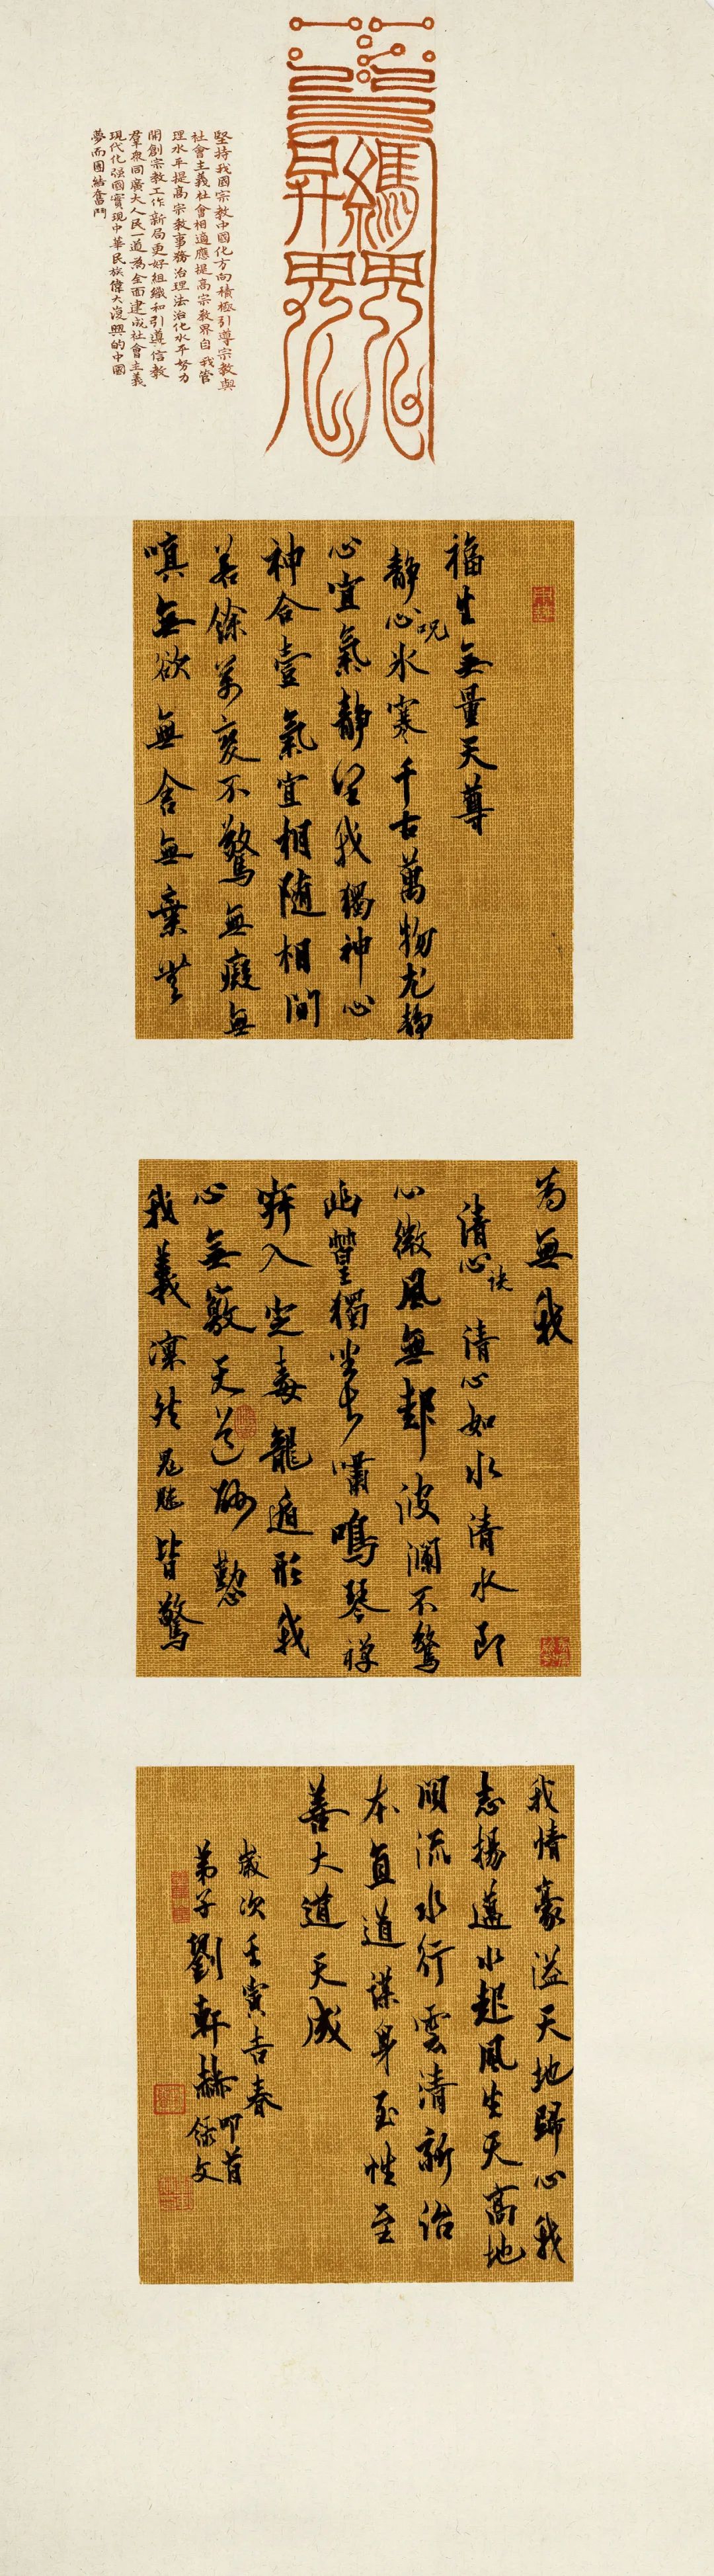 堅持我國宗教中國化方向積極引導宗教與
社會主義社會相適應提高宗教界自我管
理水平提高宗教事務治理法治化水平努力
開創宗教工作新局更好組織和引導信教
羣衆同廣大人民一道為全面建成社會主義
現代化强國實現中華民族偉大復興的中國
夢而團結奮鬥
福生無量天尊
靜心呪 氷寒千古萬物尤靜
心宜氣靜望我獨神心
神合壹氣宜相隨相間
若餘萬変不驚無癡無
嗔無欲無舍無棄無
為無我
清心訣 清心如水清水即
心微風無起波瀾不驚
幽篁獨坐長嘯鳴琴禪
寂入定毒龍遁形我
心無竅天道酬勤
我義凜然鬼魅皆驚
我情豪溢天地歸心我
志揚邁水起風生天高地
闊流水行雲清新治
本直道謀身至性至
善大道天成
歲次壬寅吉春
弟子劉軒赫叩首
錄文